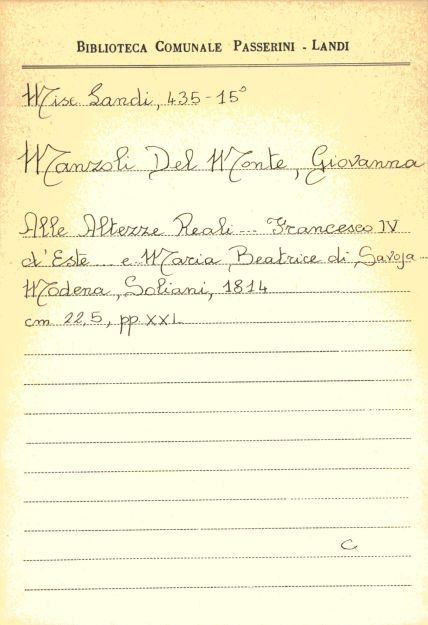 BIBLIOTECA COMUNALE PASSERINI - LANDI
Misc. Landi, 435-15°
Manzoli Del Monte, Giovanna
Alle Altezze Reali --- Francesco IV
d'Este ... e Maria Beatrice di Savoja ...
Modena, Soliani, 1814
cm 22,5, pp. XXI
C